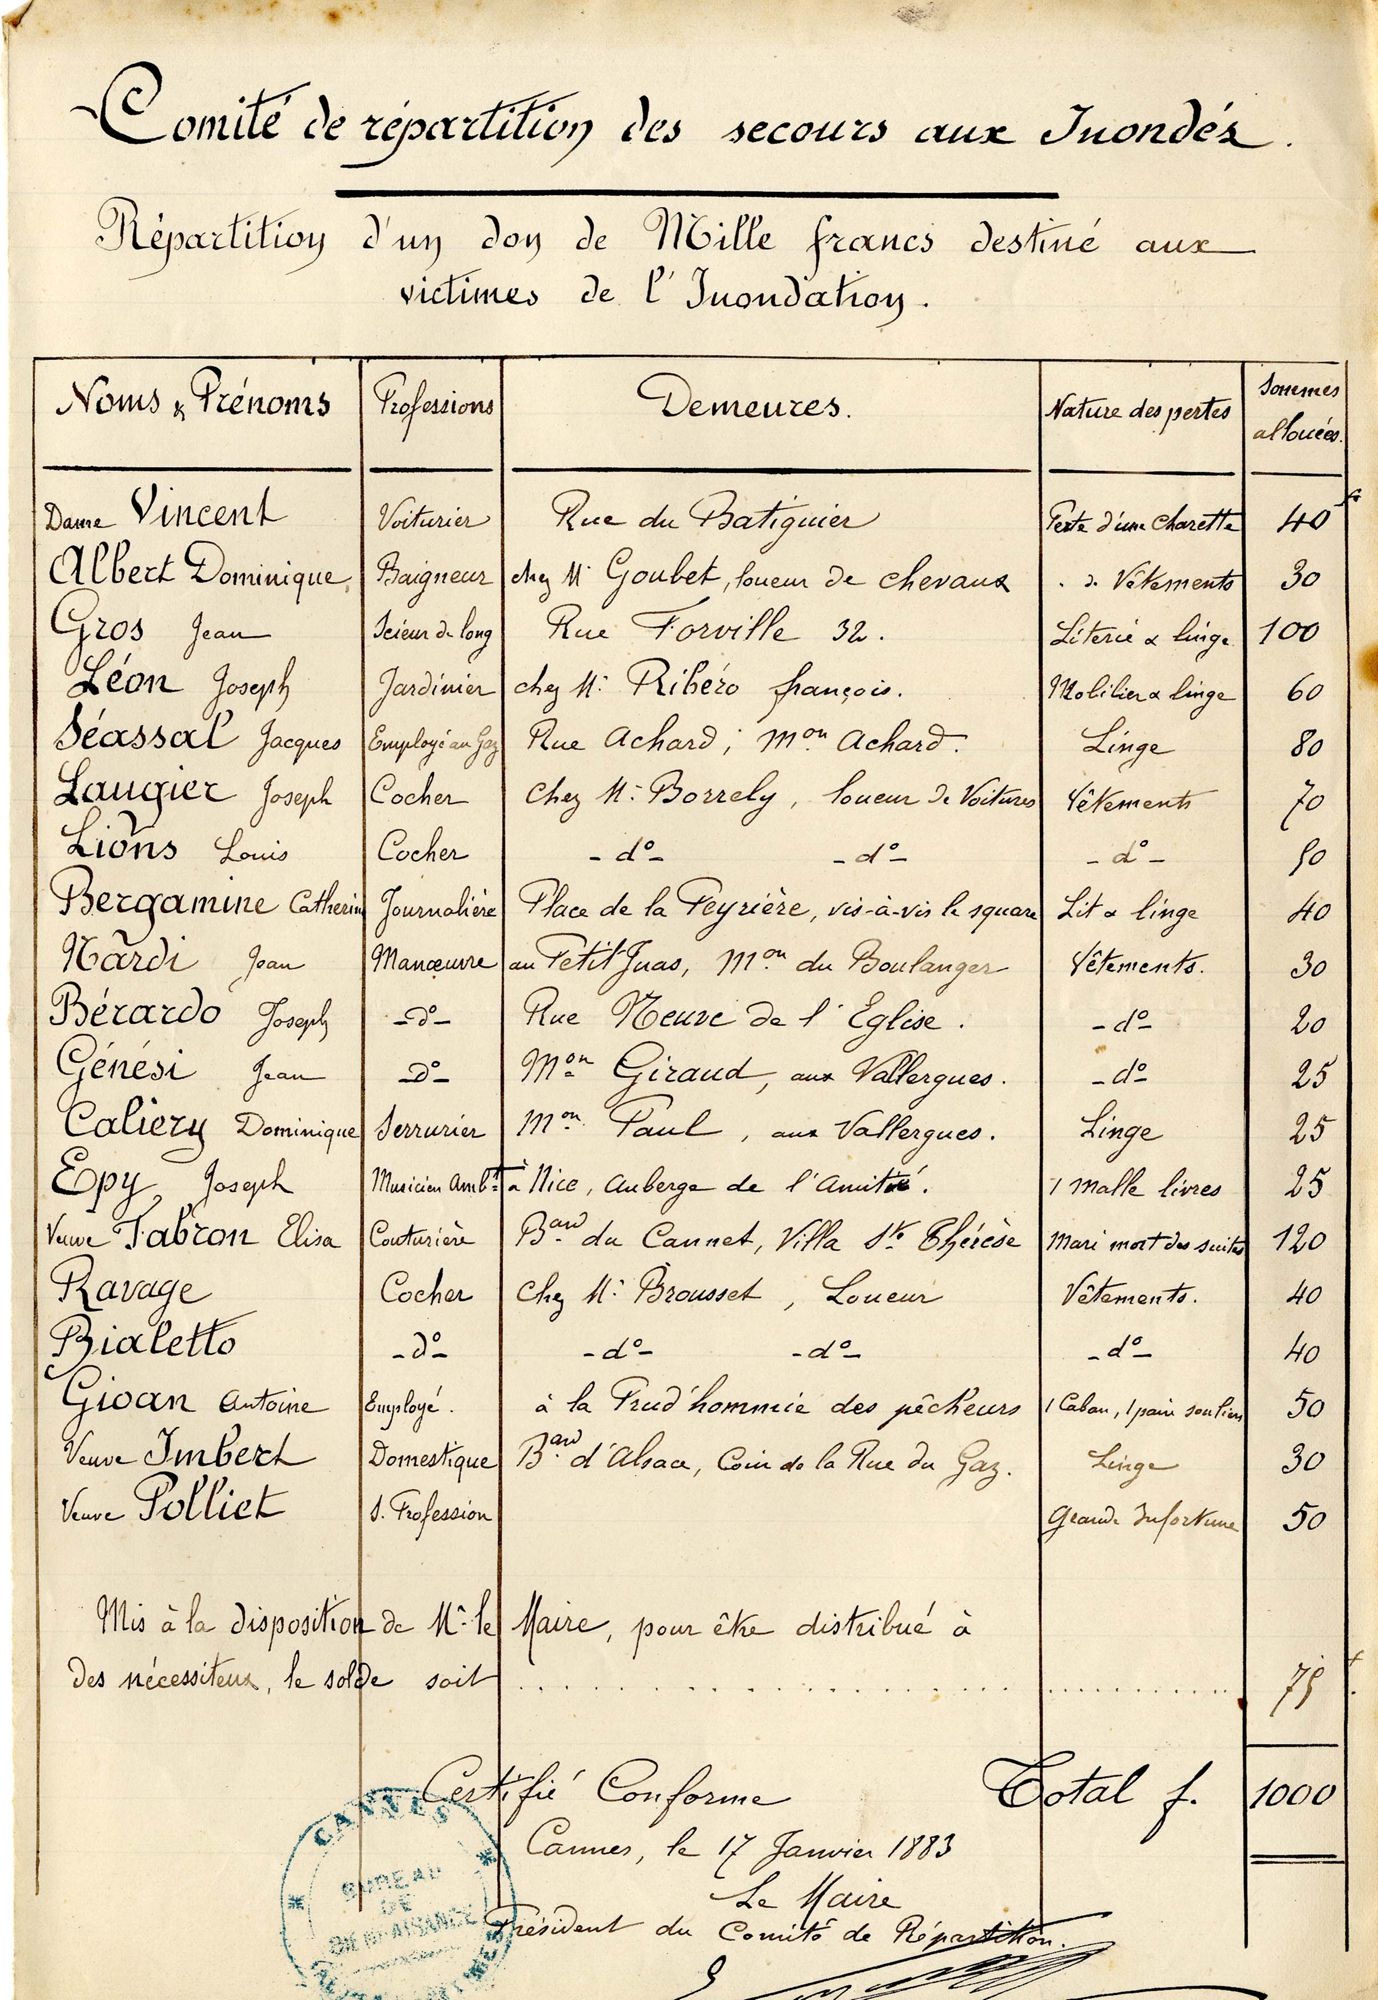 Comité de répartition des secours aux Inondés.
Répartition d'un don de Mille francs destiné aux
victimes de l'Inondation.
Noms & Prénoms Professions Demeures. Nature des pertes Sommes allouées.
Dame Vincent Voiturier Rue du Batiguier Perte d'une Charette 40 f
Albert Dominique Baigneur chez Mr Goubet, loueur de chevaux . d. Vêtements 30
Gros Jean Scieur de long Rue Forville 32. Literie & linge 100
Léon Joseph Jardinier chez Mr Ribéro françois. Mobilier & linge 60
Séassal Jacques Employé au Gaz Rue Achard; Mon Achard. Linge 80
Laugier Joseph Cocher chez Mr Borrely, loueur de Voitures Vêtements 70
Lions Louis Cocher -do- -do- -do- 50
Bergamine Catherine Journalière Place de la Peyrière, vis-à-vis le square Lit & linge 40
Nardi Jean Manœuvre au Petit Juas, Mon du Boulanger Vêtements. 30
Bérardo Joseph -do- Rue Neuve de l'Eglise. -do- 20
Génési Jean -do- Mon Giraud, aux Vallergues. -do- 25
Caliery Dominique Serrurier Mon Paul, aux Vallergues. Linge 25
Epy Joseph Musicien Ambt à Nice, Auberge de l'Amitié. 1 Malle livres 25
Veuve Fabron Elisa Couturière Bard du Cannet, Villa Ste Thérèse Mari mort des suites 120
Ravage Cocher chez Mr Brousset, Loueur Vêtements. 40
Bialetto -do- -do- -do- -do- 40
Gioan Antoine Employé. à la Prud'hommie des pêcheurs 1 Caban, 1 pair souliers 50
Veuve Imbert Domestique Bard d'Alsace, Coin de la Rue du Gaz. Linge 30
Veuve Polliet S. Profession Grande Infortune 50
Mis à la disposition de Mr le Maire, pour être distribué à
des nécessiteux, le solde soit .................... 75 f.
Certifié Conforme Total f. 1000
Cannes, le 17 Janvier 1883
Le Maire
Président du Comité de Répartition.
CANNES
BUREAU
DE
BIENFAISANCE